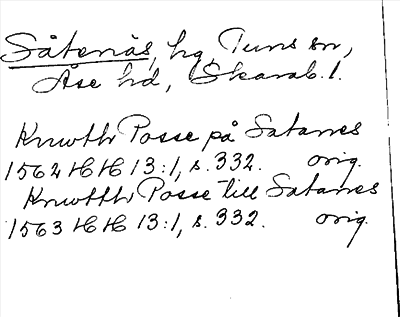 Såtenäs, hg, Tuns sn,
Åse hd, Skarab. l.
Knwthr Posse på Satanes
1562 HH 13:1, s. 332. orig.
Knwtthr Posse till Satanes
1563 HH 13:1, s. 332. orig.